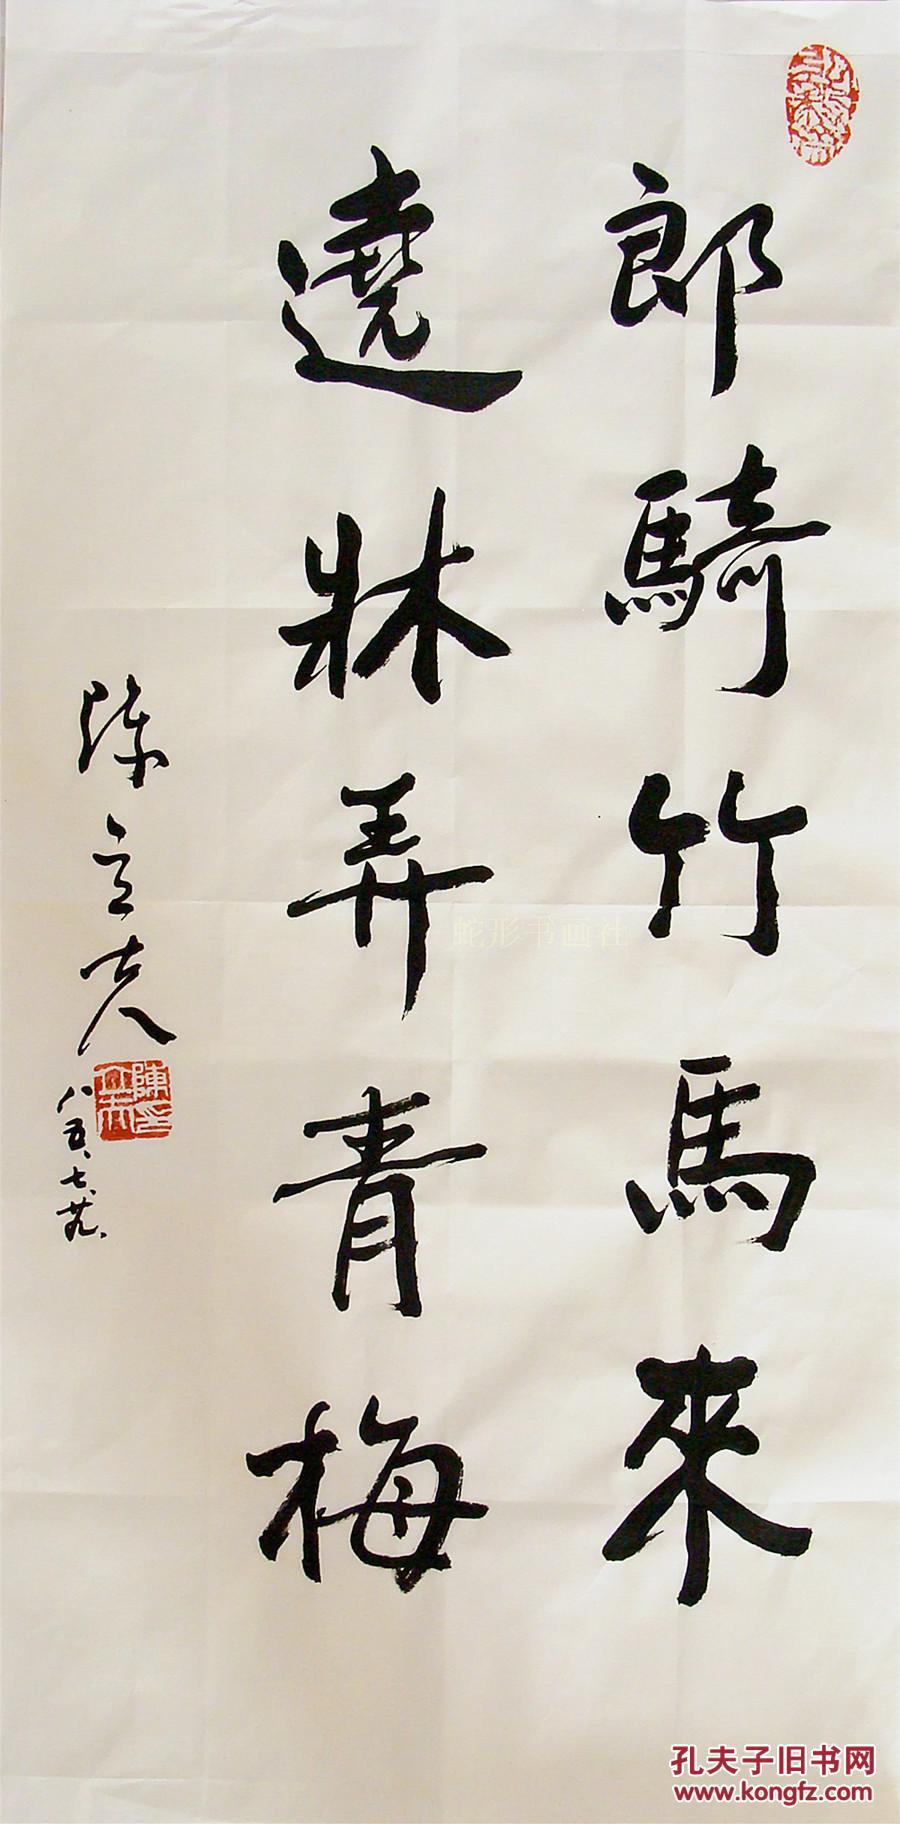 郎騎竹馬來
遶牀弄青梅
陳立夫
八五、七、廿九、
陳立夫印
蛇形书画社
孔夫子旧书网
www.kongfz.com